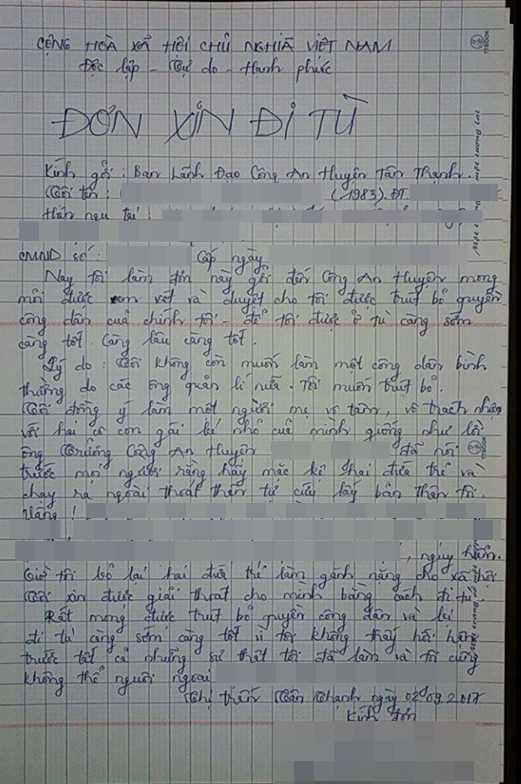 CỘNG HOÀ XÃ HỘI CHỦ NGHĨA VIỆT NAM
Độc lập - Tự do - Hạnh phúc
ĐƠN XIN ĐI TÙ
Kính gởi: Ban Lãnh Đạo Công An Huyện Tân Thạnh.
Tôi tên: (1983). ĐT.
Hiện ngụ tại:
CMND số: Cấp ngày
Nay tôi làm đơn này gởi đến Công An Huyện mong
mỏi được xem xét và duyệt cho tôi được truất bỏ quyền
công dân của chính tôi - để tôi được ở tù càng sớm
càng tốt. Càng lâu càng tốt.
Lý do: Tôi không còn muốn làm một công dân bình
thường do các ông quản lí nữa. Tôi muốn truất bỏ.
Tôi đồng ý làm một người mẹ vô tâm, vô trách nhiệm
với hai cô con gái bé nhỏ của mình giống như lời
ông Trưởng Công An Huyện đã nói
trước mọi người rằng hãy mặc kệ hai đứa trẻ và
chạy ra ngoài thoát thân tự cứu lấy bản thân tôi.
Vâng!
, nguy hiểm.
Giờ tôi bỏ lại hai đứa trẻ làm gánh nặng cho xã hội
Tôi xin được giải thoát cho mình bằng cách đi tù
Rất mong được truất bỏ quyền công dân và
đi tù càng sớm càng tốt vì tôi không thấy hối hận
trước tất cả những sự thật tôi đã làm và tôi cũng
không thể nguôi ngoai
Thị trấn Tân Thạnh ngày 02.09.2017
Kính đơn